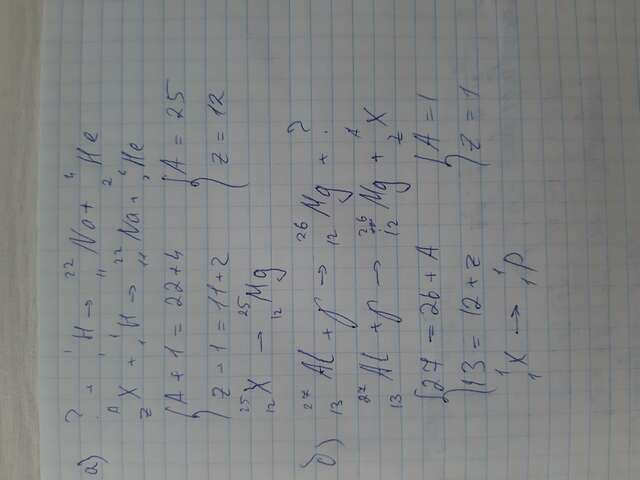 а) ? + ¹H → ²²₁₁Na + ⁴₂He
ᴬ_ZX + ¹₁H → ²²₁₁Na + ⁴₂He
{A + 1 = 22 + 4 {A = 25
Z + 1 = 11 + 2 Z = 12
²⁵₁₂X → ²⁵₁₂Mg
б) ²⁷₁₃Al + γ → ²⁶₁₂Mg + ?
²⁷₁₃Al + γ → ²⁶₁₂Mg + ᴬ_ZX
{27 = 26 + A {A = 1
13 = 12 + Z Z = 1
¹₁X → ¹₁p